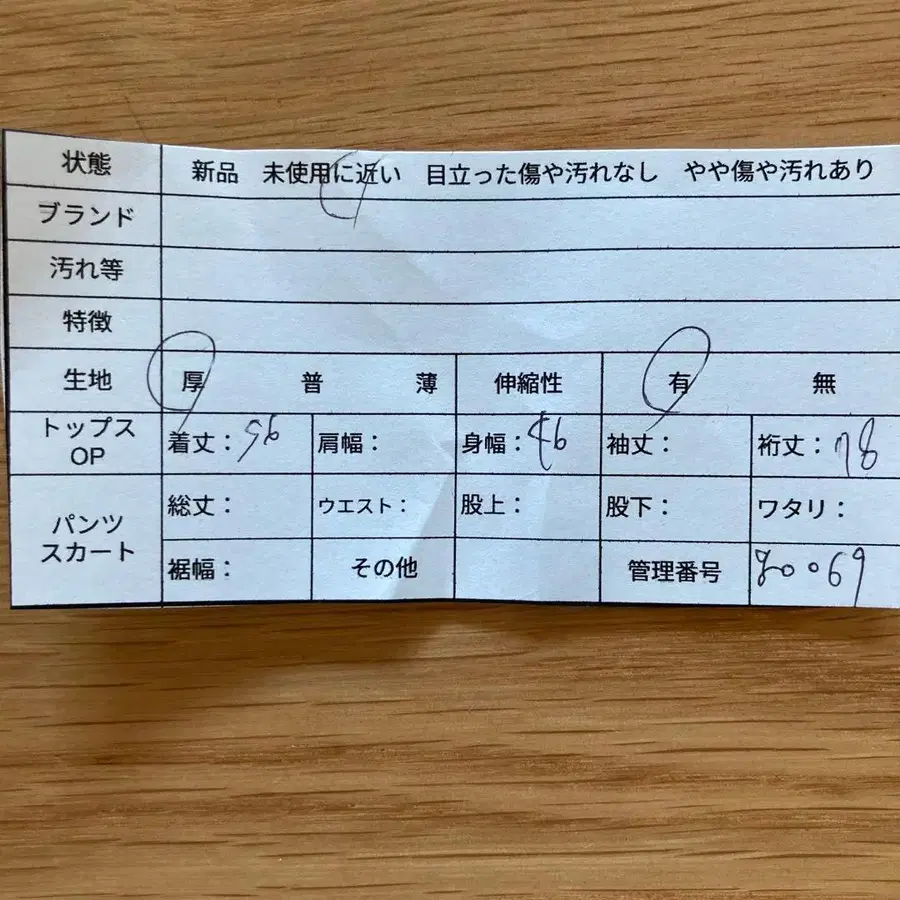 状態 新品 未使用に近い 目立った傷や汚れなし やや傷や汚れあり
ブランド
汚れ等
特徴
生地 厚 普 薄 伸縮性 有 無
トップス OP 着丈: 肩幅: 身幅: 46 袖丈: 裄丈: 78
パンツ スカート 総丈: ウエスト: 股上: 股下: ワタリ:
裾幅: その他 管理番号